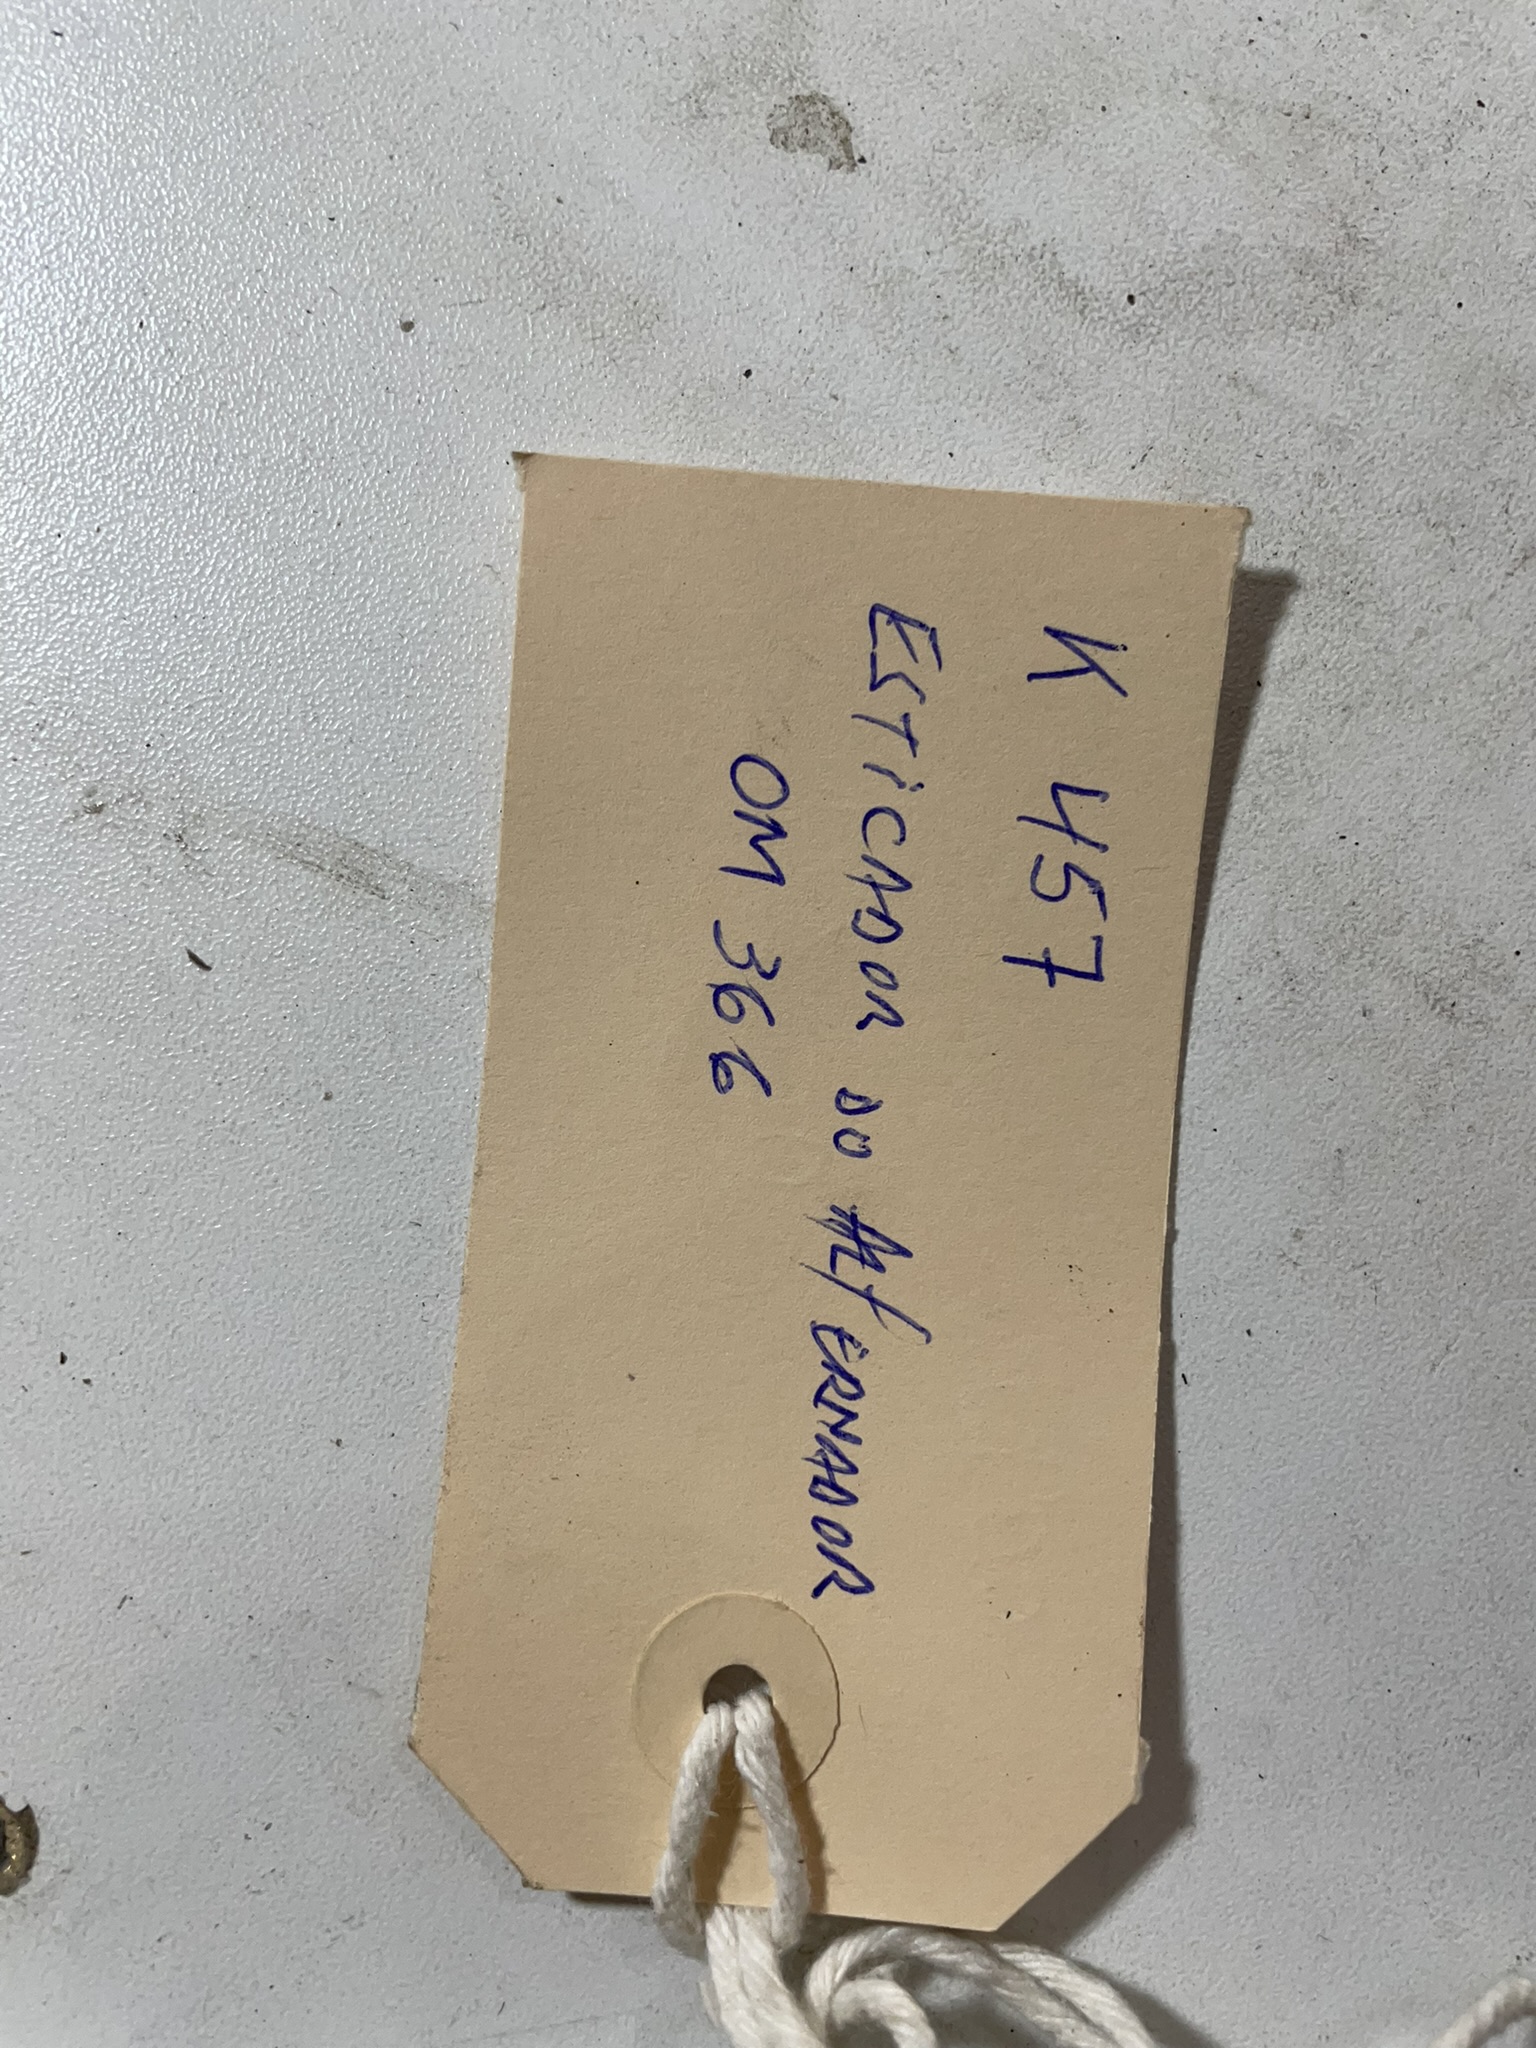 K 457
ESTICADOR DO AlTERNADOR
OM 366